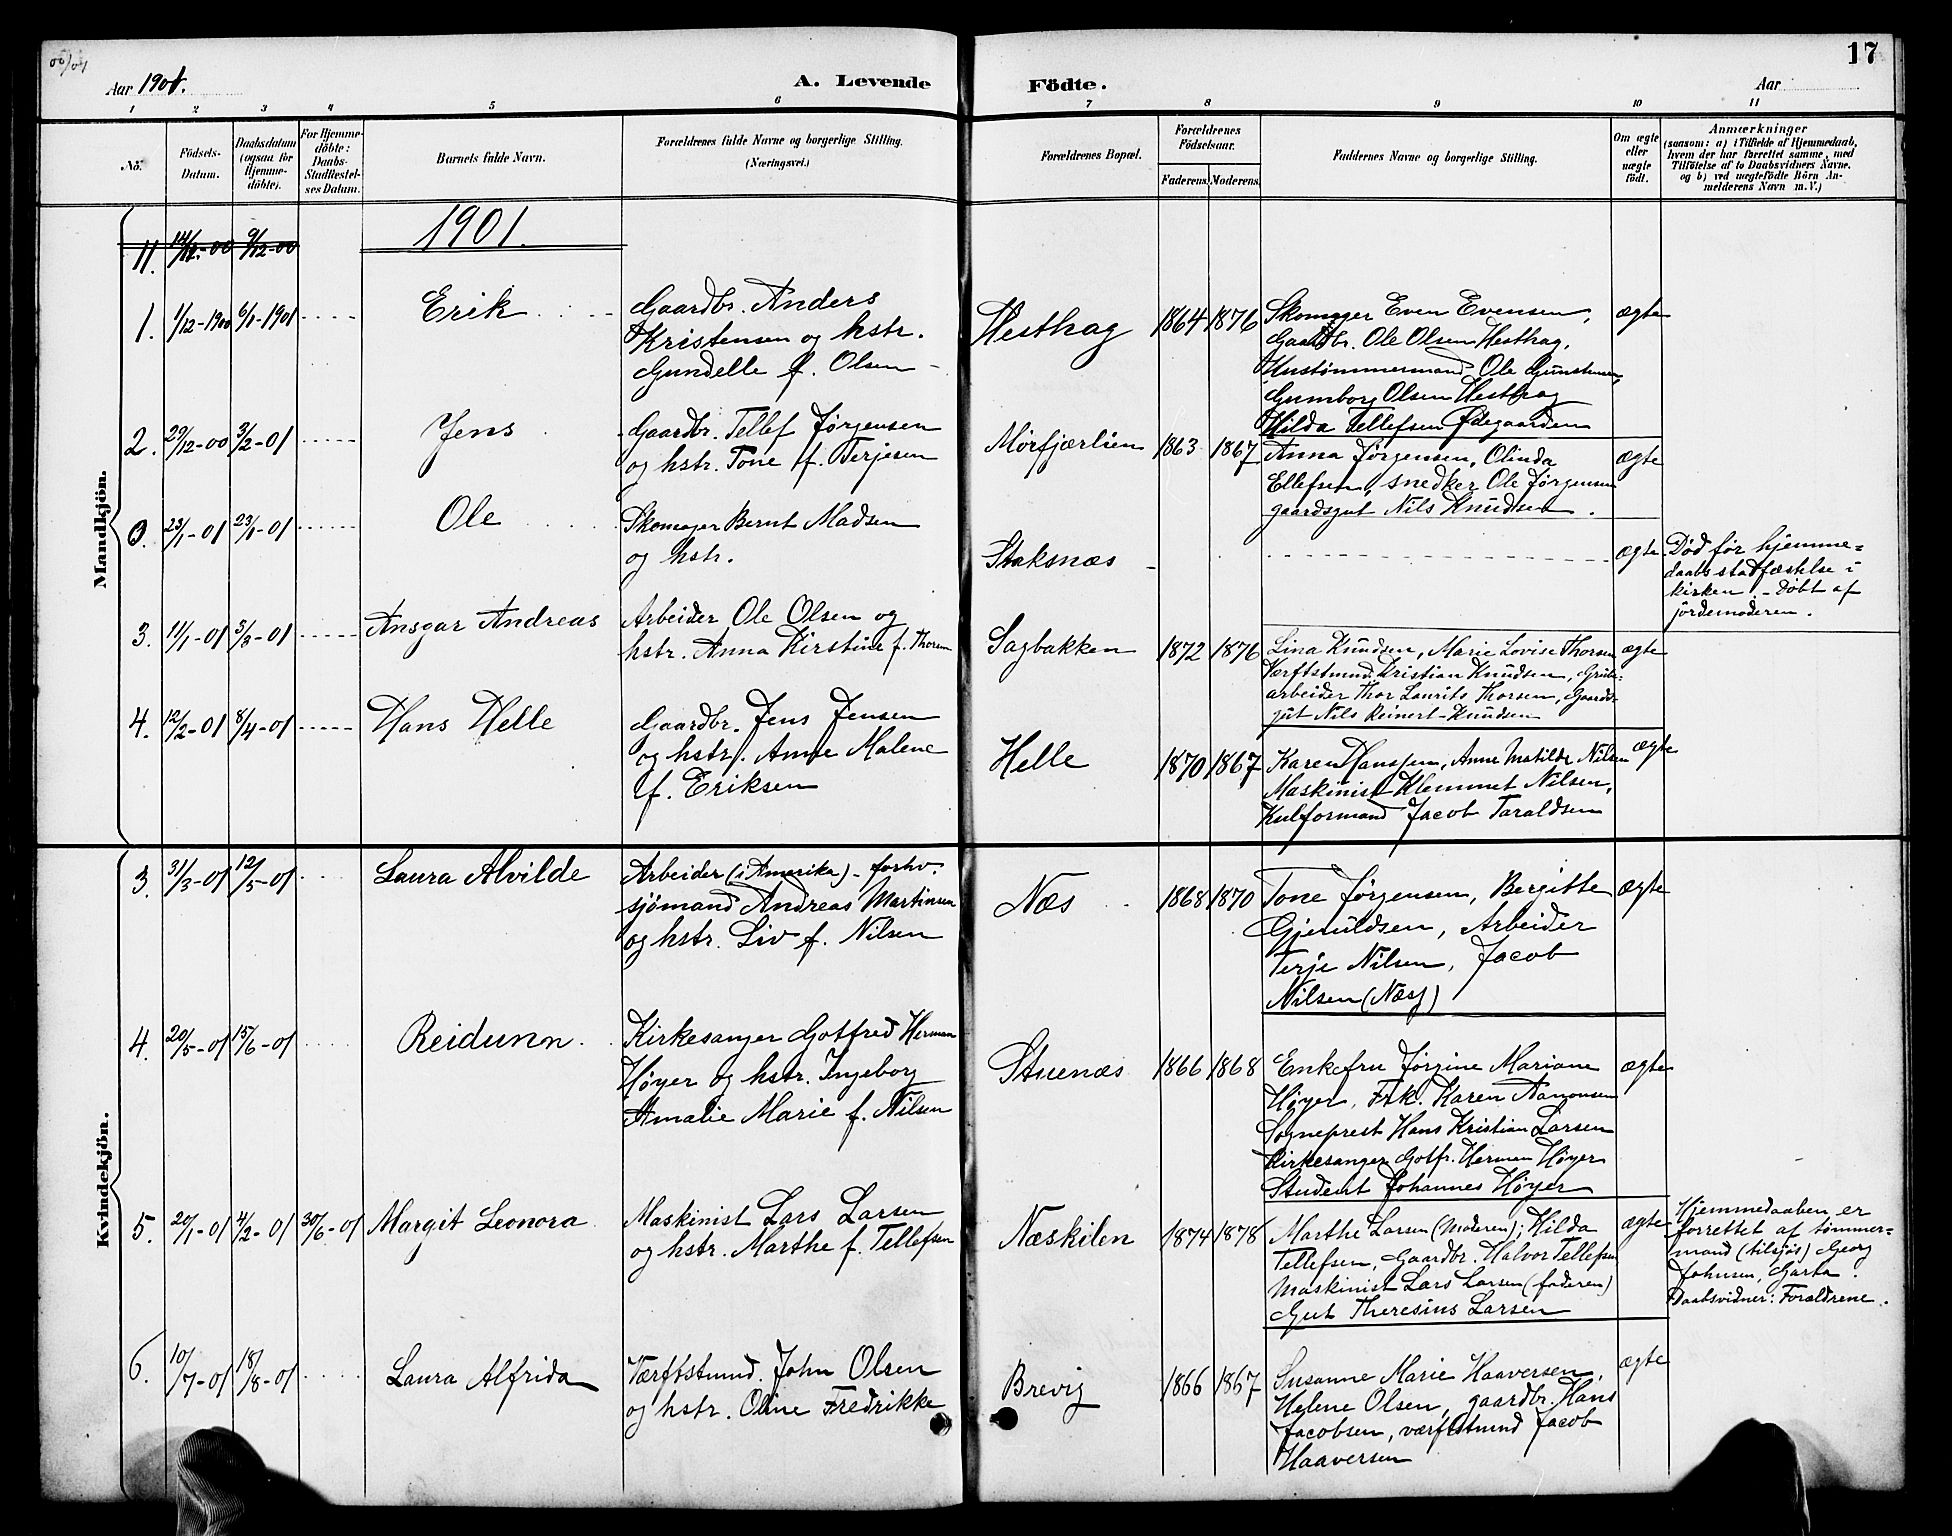 00/01
Aar 1901.
A. Levende
Födte.
Aar
17
1 2 3 4 5 6 7 8 9 10 11
Nö.
Födsels-
Datum.
Daabsdatum
(ogsaa for
Hjemme-
döbte).
For Hjemme-
döbte:
Daabs-
Stadfæstel-
ses Datum.
Barnets fulde Navn.
Forældrenes fulde Navne og borgerlige Stilling.
(Næringsvei.)
Forældrenes Bopæl.
Forældrenes
Födselsaar.
Faderens. Moderens.
Faddernes Navne og borgerlige Stilling.
Om ægte
eller
uægte
födt.
Anmærkninger
(saasom: a) i Tilfælde af Hjemmedaab,
hvem der har forrettet samme, med
Tilföielse af to Daabsvidners Navne.
og b) ved uægtefödte Börn An-
melderens Navn m. V.)
Mandkjön.
11. 14/12-00 9/12-00
1901.
1. 1/12-1900 6/1-1901
Erik
Gaardbr. Anders
Kristensen og hstr.
Gundelle f. Olsen
Hesthag
1864 1876
Skomager Even Evensen,
Gaardbr. Ole Olsen Hesthag,
Hustømmermand Ole Gunstensen,
Gumborg Olsen Hesthag
Hilda Tellefsen Ødegaarden
ægte
2. 29/12-00 3/2-01
Jens
Gaardbr. Tellef Jørgensen
og hstr. Tone f. Terjesen
Mörfjærlien
1863 1867
Anna Jørgensen, Olinda
Ellefsen, snedker Ole Jørgensen
gaardsgut Nils Knudsen.
ægte
0. 23/1-01 23/1-01
Ole
Skomager Bernt Madsen
og hstr.
Staksnæs
ægte
Död før hjemme-
daabs stadfæstelse i
kirken. - Döbt af
jördemoderen.
3. 11/1-01 3/3-01
Ansgar Andreas
Arbeider Ole Olsen og
hstr. Anna Kirstine f. Thorsen
Sagbakken
1872 1876
Lina Knudsen, Marie Lovise Thorsen
Værftstmnd. Kristian Knudsen, Grube-
arbeider Thor Laurits Thorsen, Gaards-
gut Nils Reinert Knudsen
ægte
4. 12/2-01 8/4-01
Hans Helle
Gaardbr. Jens Jensen
og hstr. Anne Malene
f. Eriksen
Helle
1870 1867
Karen Hanssen, Anne Matilde Nilsen
Maskinist Klemmet Nilsen,
Kulformand Jacob Taraldsen
ægte
Kvindekjön.
3. 31/3-01 12/5-01
Laura Alvilde
Arbeider (i Amerika) - forhv.
sjömand Andreas Martinsen
og hstr. Liv f. Nilsen
Næs
1868 1870
Tone Jørgensen, Bergitte
Gjeruldsen, Arbeider
Terje Nilsen, Jacob
Nilsen (Næs)
ægte
4. 20/5-01 15/6-01
Reidunn.
Kirkesanger Gotfred Herman
Høyer og hstr. Ingeborg
Amalie Marie f. Nilsen
Stuenæs
1866 1868
Enkefru Jørgine Mariane
Høyer, Frk. Karen Aanonsen
Sogneprest Hans Kristian Larsen
Kirkesanger Gotfr. Herman Høyer
Student Johannes Høyer
ægte
5. 20/1-01 4/2-01 30/6-01
Margit Leonora
Maskinist Lars Larsen
og hstr. Marthe f. Tellefsen
Næskilen
1874 1878
Marthe Larsen (Moderen); Hilda
Tellefsen, Gaardbr. Halvor Tellefsen
Maskinist Lars Larsen (faderen)
Gut Theresius Larsen
ægte
Hjemmedaaben er
forrettet af tømmer-
mand (tilsjös) Georg
Johnsen, Garta.
Daabsvidner: Forældrene.
6. 10/7-01 18/8-01
Laura Alfrida
Værftstmnd. John Olsen
og hstr. Oline Fredrikke
Brevig
1866 1867
Susanne Marie Haaversen,
Helene Olsen, gaardbr. Hans
Jacobsen, værftstmnd Jacob
Haaversen
ægte